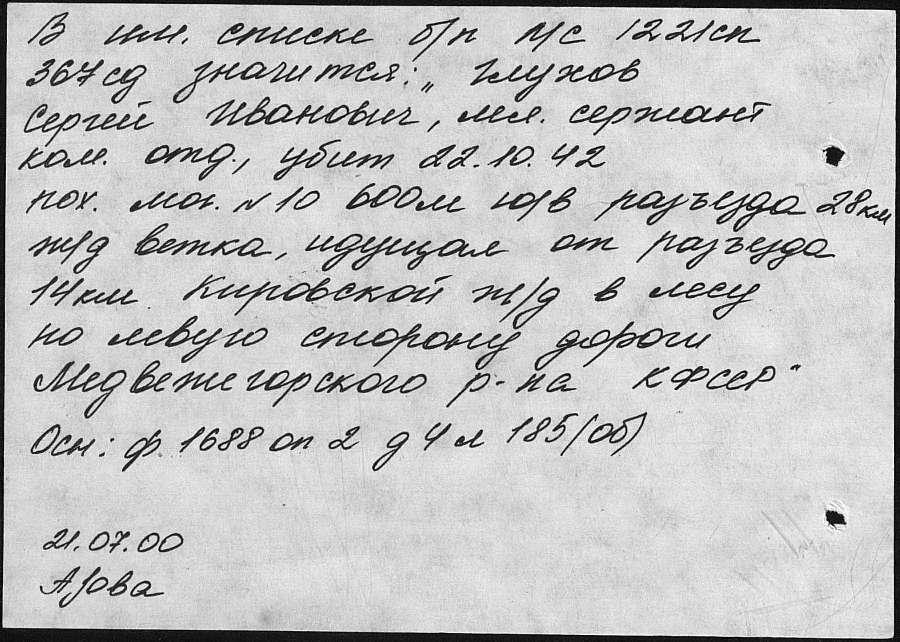 В им. списке б/п л/с 1221сп
367сд значится: „Глухов
Сергей Иванович, мл. сержант
ком. отд., убит 22.10.42
пох. мог. №10 600м ю/в разъезда 28км
ж/д ветка, идущая от разъезда
14км Кировской ж/д в лесу
по левую сторону дороги
Медвежегорского р-на КФССР"
Осн: ф. 1688 оп 2 д 4 л 185(об)
21.07.00